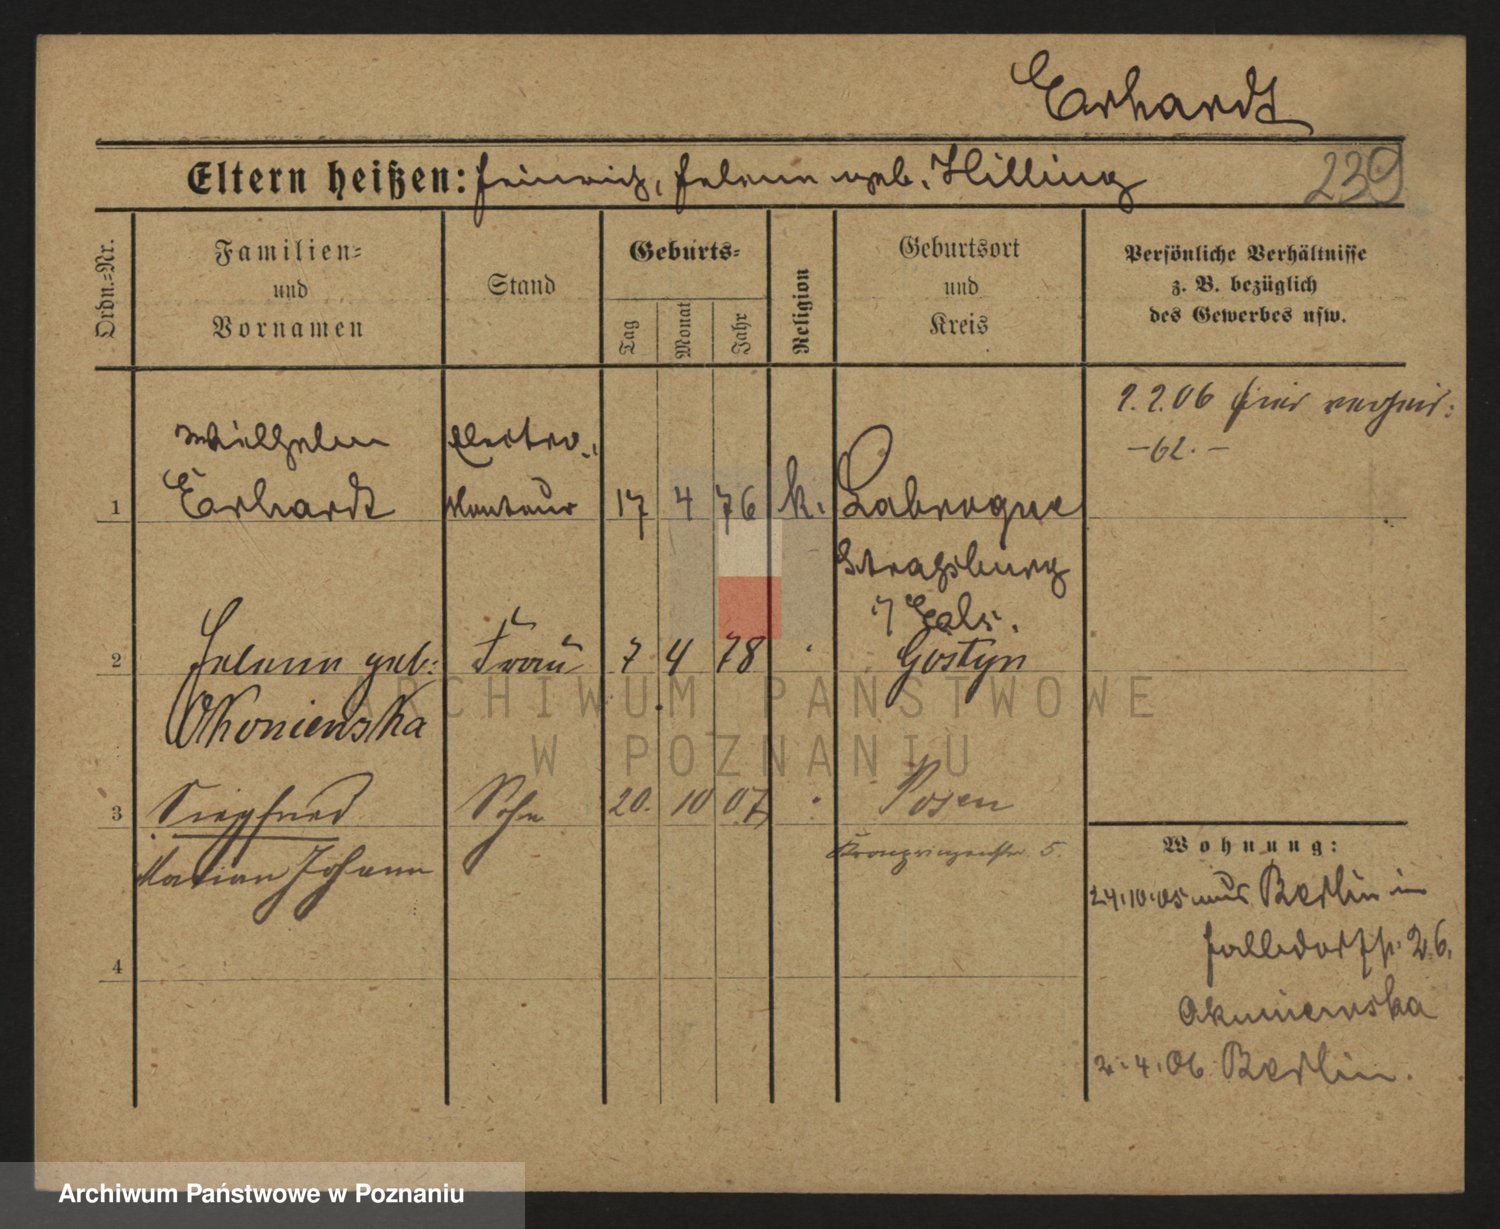 Erhardt
Eltern heißen: Heinrich, Helene geb. Hilling
239
Ordn.-Nr.
Familien-
und
Vornamen
Stand
Geburts-
Tag
Monat
Jahr
Religion
Geburtsort
und
Kreis
Persönliche Verhältnisse
z. B. bezüglich
des Gewerbes usw.
2.2.06 hier verheir:
-62.-
Wilhelm
Electro-
1 Erhardt Monteur 17 4 76 k. Labroque
Strassburg
i/ Els.
2 Helene geb: Frau 7 4 78 Gostyn
Okonienska
3 Siegfried Sohn 20. 10 07 Posen
Marian Johann
Kronprinzenstr. 5.
Wohnung:
24.10.05 aus Berlin in
26.
4
2.4.06 Berlin.
ARCHIWUM PAŃSTWOWE
W POZNANIU
Archiwum Państwowe w Poznaniu